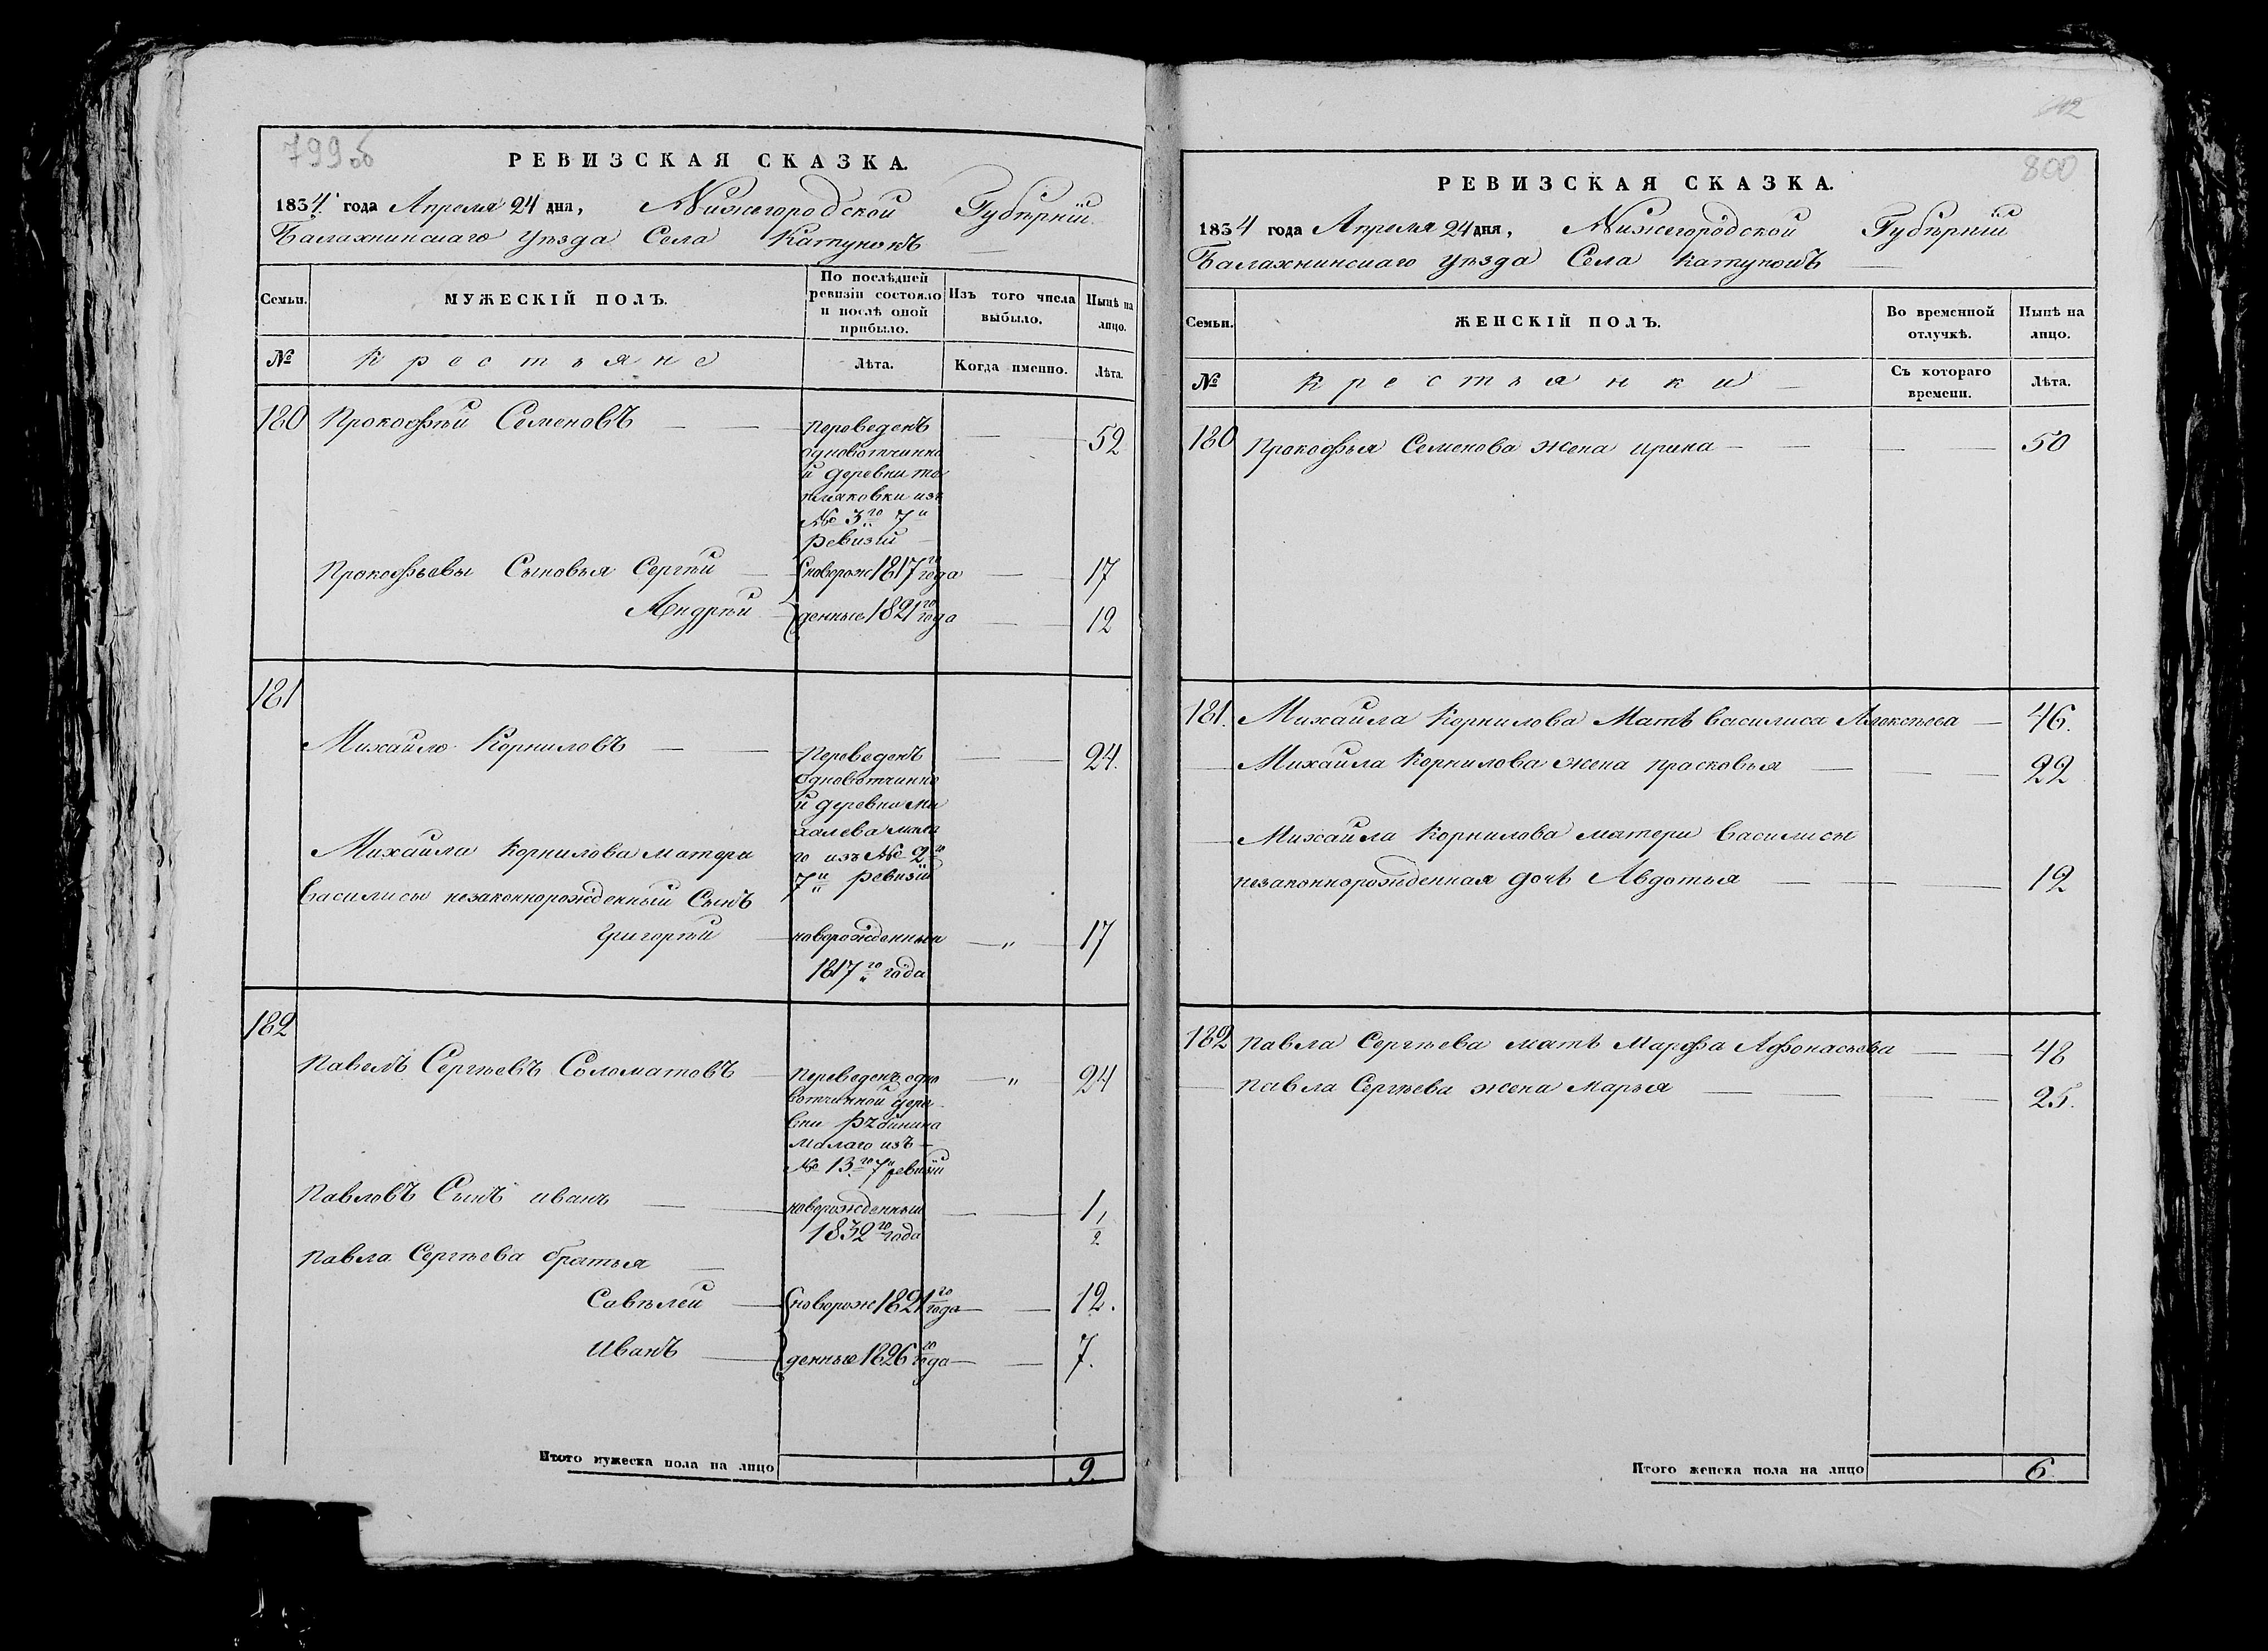 799об
РЕВИЗСКАЯ СКАЗКА.
1834 года Апреля 24 дня, Нижегородской Губѣрніи
Балахнинскаго Уѣзда Села Катунокъ
Семьи.
МУЖЕСКІЙ ПОЛЪ.
По послѣдней ревизіи состояло и послѣ оной прибыло.
Изъ того числа выбыло.
Нынѣ на лицо.
№
Крестьяне
Лѣта.
Когда именно.
Лѣта.
180 Прокофѣй Семеновъ переведенъ 52
одновотчинно
й деревни
изъ
№ 3го 7й
ревизіи
Прокофьевы Сыновья Сергѣй новорож 1817го года 17
Андрѣй денные 1821го года 12
181
Михайло Корниловъ Переведенъ 24.
одновотчинно
й деревни Ми
халева мала
Михайла Корнилова матери го изъ № 2го
7й ревизіи
Василисы незаконнорожденный Сынъ
Григорѣй новорожденный „ 17
1817го года
182
Павелъ Сергѣевъ Соломатовъ Переведенъ одно „ 24
вотчинной дере
вни Рябинина
Малаго изъ
№ 13го 7й ревизіи
Павловъ Сынъ иванъ новорожденный 1 1/2
1832го года
Павла Сергѣева братья
Савѣлей новорож 1821го года 12.
Иванъ денные 1826го года 7.
Итого мужеска пола на лицо 9.
800
РЕВИЗСКАЯ СКАЗКА.
1834 года Апреля 24 дня, Нижегородской Губѣрніи
Балахнинскаго Уѣзда Села Катунокъ
Семьи.
ЖЕНСКІЙ ПОЛЪ.
Во временной отлучкѣ.
Нынѣ на лицо.
№
Крестьянки
Съ котораго времени.
Лѣта.
180 Прокофья Семенова жена ирина 50
181. Михайла Корнилова Мать Василиса Алексѣева 46.
Михайла Корнилова жена прасковья 22
Михайла Корнилова матери Василисы
незаконнорожденная дочь Авдотья 12
182 Павла Сергѣева мать Марфа Афонасьева 48
Павла Сергѣева жена Марья 25.
Итого женска пола на лицо 6